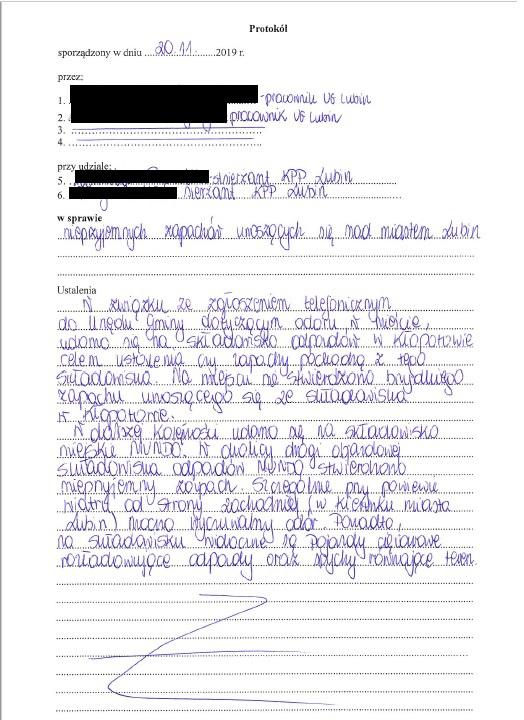 Protokół
sporządzony w dniu ....20.11.......2019 r.
przez:
1. -pracownik UG Lubin
2. pracownik UG Lubin
3.
4.
przy udziale:
5. -st.sierżant KPP Lubin
6. sierżant KPP Lubin
w sprawie
nieprzyjemnych zapachów unoszących się nad miastem Lubin
Ustalenia
W związku ze zgłoszeniem telefonicznym
do Urzędu Gminy dotyczącym odoru w mieście,
udano się na składowisko odpadów w Kłopotowie
celem ustalenia czy zapachy pochodzą z tego
składowiska. Na miejscu nie stwierdzono brzydkiego
zapachu unoszącego się ze składowiska
w Kłopotowie.
W dalszej kolejności udano się na składowisko
miejskie MUNDO. W okolicy drogi objazdowej
składowiska odpadów MUNDO stwierdzono
nieprzyjemny zapach. Szczególnie przy powiewie
wiatru od strony zachodniej (w kierunku miasta
Lubin) mocno wyczuwalny odór. Ponadto,
na składowisku widoczne są pojazdy ciężarowe
rozładowujące odpady oraz spychy równające teren.